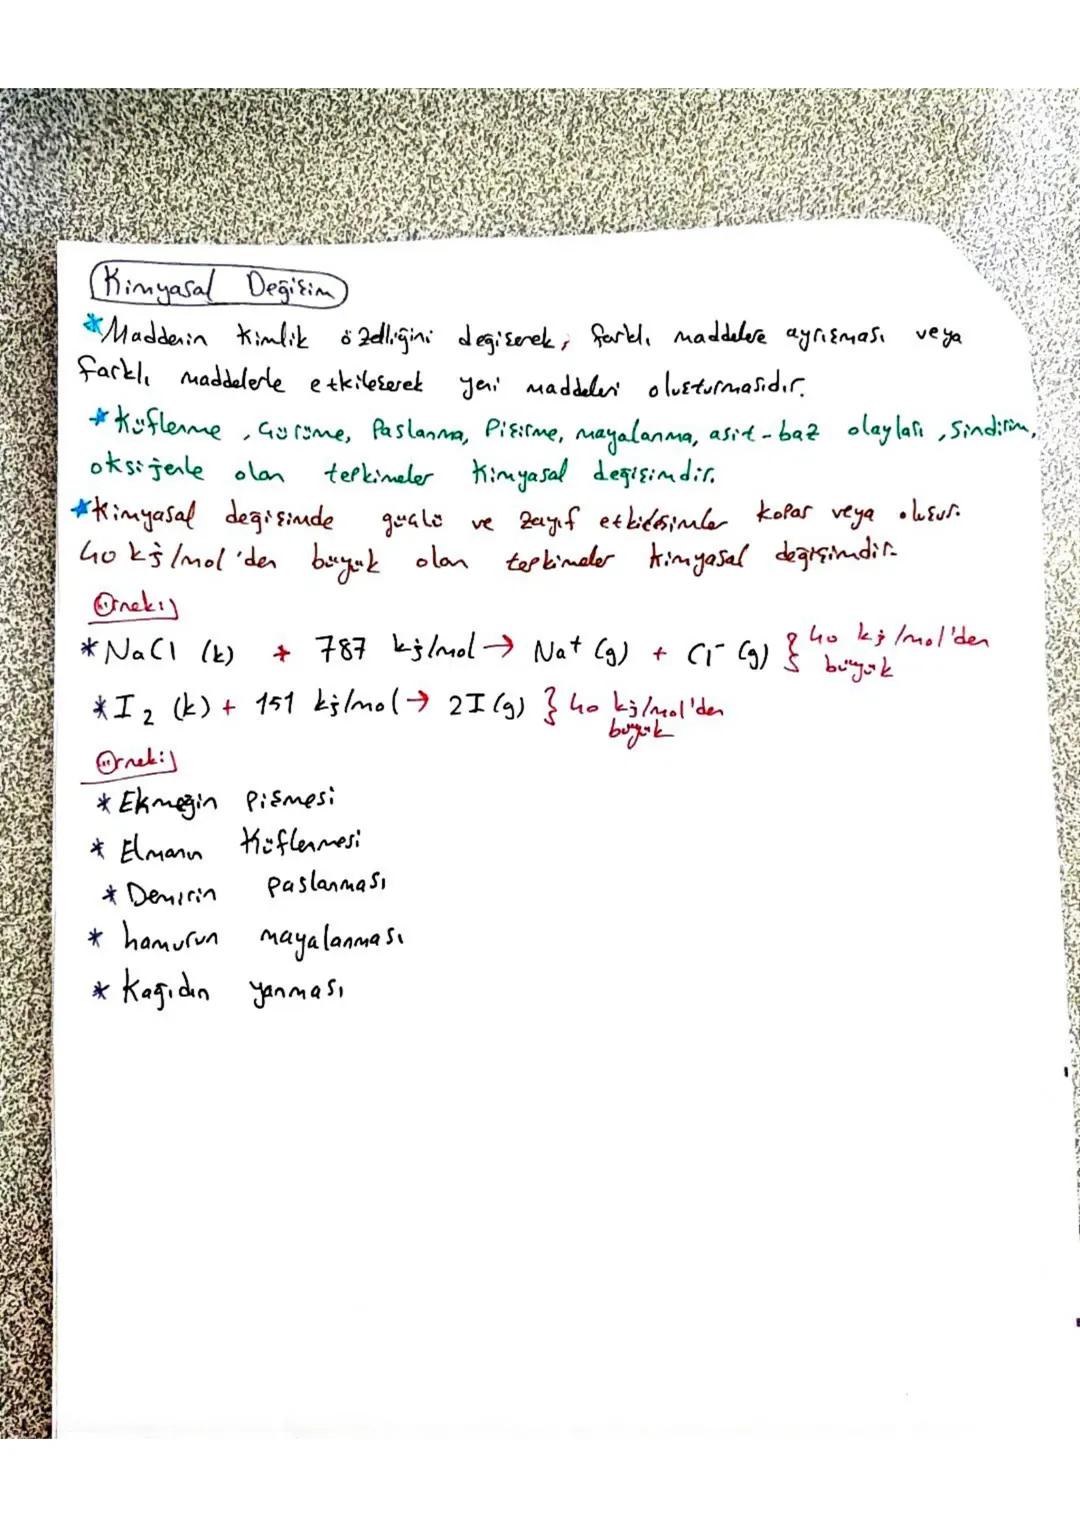 Kimyasal Değişim
*Maddenin kimlik özelliğini değişerek, farklı maddelere ayrışması veya
farklı maddelerle etkileşerek yeni maddeleri oluşturmasıdır.
*Küflenme, Çürüme, Paslanma, Pişirme, mayalanma, asit-baz olayları, Sindirim,
oksijenle olan tepkimeler kimyasal değişimdir.
*Kimyasal değişimde güçlü ve zayıf etkileşimler kopar veya oluşur.
40 kj/mol'den büyük olan tepkimeler kimyasal değişimdir.
Örnek:
*NaCl (k) + 787 kj/mol → Na⁺ (g) + Cl⁻ (g) } 40 kj/mol'den
büyük
*I₂ (k) + 151 kj/mol → 2I (g) } 40 kj/mol'den
büyük
Örnek:
* Ekmeğin Pişmesi
* Elmanın Küflenmesi
* Demirin paslanması
* hamurun mayalanması
* Kağıdın yanması